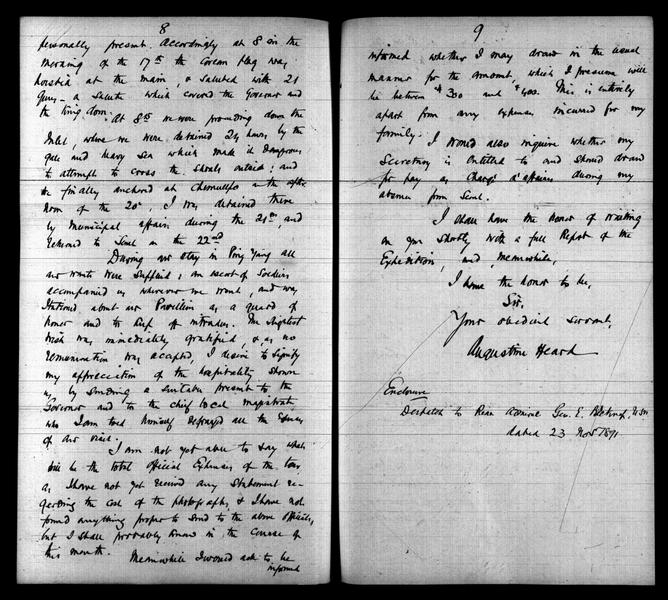 8
personally present. Accordingly at 8 in the
morning of the 17th the Corean flag was
hoisted at the main, & saluted with 21
Guns – a salute which covered the Governor and
the living dom.
At 8.45 we were proceeding down the
Inlet, where we were detained 24 hours by the
gale and heavy sea which made it dangerous
to attempt to cross the shoals outside; and
we finally anchored at Chemulpo in the after-
noon of the 20th. I was detained there
by Municipal affairs during the 21st, and
returned to Seoul on the 22nd.
During our stay in Ping Yang all
our wants were supplied; an escort of Soldiers
accompanied us wherever we went, and was
stationed about our Pavilion as a guard of
honor and to keep off intruders. The slightest
wish was immediately gratified, & as no
remuneration was accepted, I desire to signify
my appreciation of the hospitality shown
us, by sending a suitable present to the
Governor and to the chief local magistrate
who I am told himself defrayed all the Expenses
of our visit.
I am not yet able to say what
will be the total official Expenses of the tour,
as I have not yet received any Statement re-
garding the cost of the photographs, & I have not
found anything proper to send to the above officials,
but I shall probably know in the course of
this month. Meanwhile I would ask to be
informed
9
informed whether I may draw in the usual
manner for the amount, which I presume will
be between $300 and $400. This is entirely
apart from any expenses incurred for my
family.
I would also inquire whether my
Secretary is entitled to and should draw
for pay as Chargé d'affaires during my
absence from Seoul.
I shall have the honor of writing
you shortly with a full Report of the
Expedition, and, meanwhile,
I have the honor to be,
Sir,
Your obedient servant,
Augustine Heard
Enclosure
Despatch to Rear Admiral Geo. E. Belknap, U.S.N.
dated 23 Novr 1891